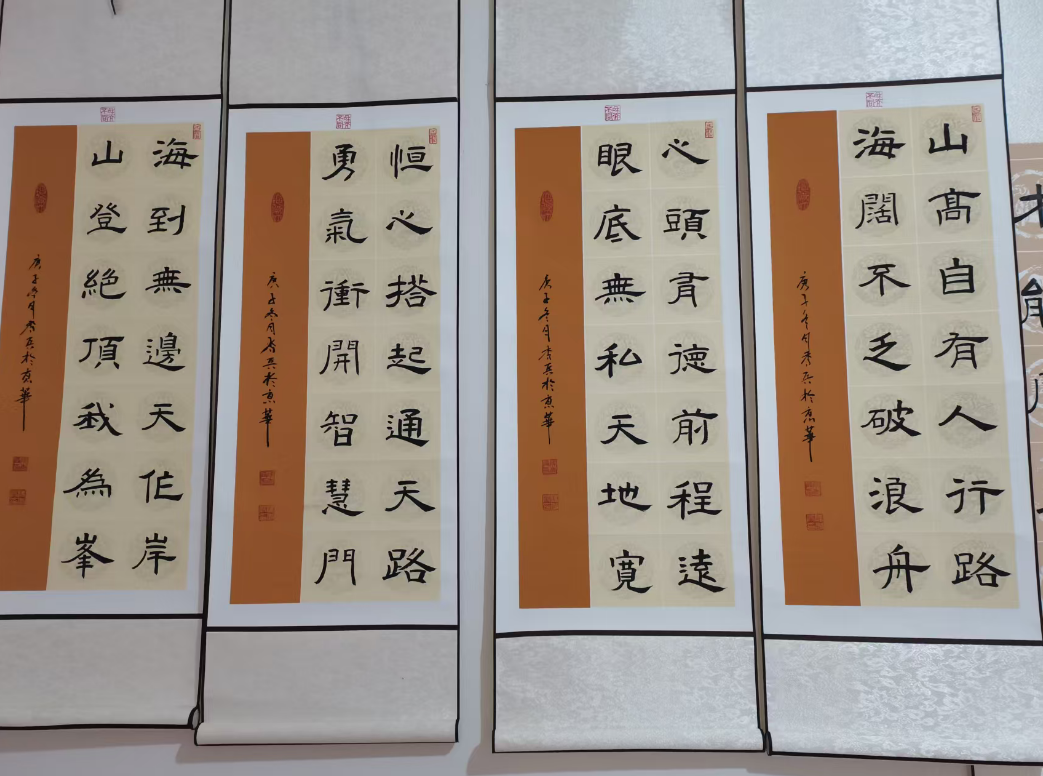 山髙自有人行路
海闊不乏破浪舟
庚子冬月於京華
心頭有德前程遠
眼底無私天地寬
庚子冬月於京華
恒心搭起通天路
勇氣衝開智慧門
庚子冬月於京華
海到無邊天作岸
山登絕頂我為峯
庚子冬月於京華